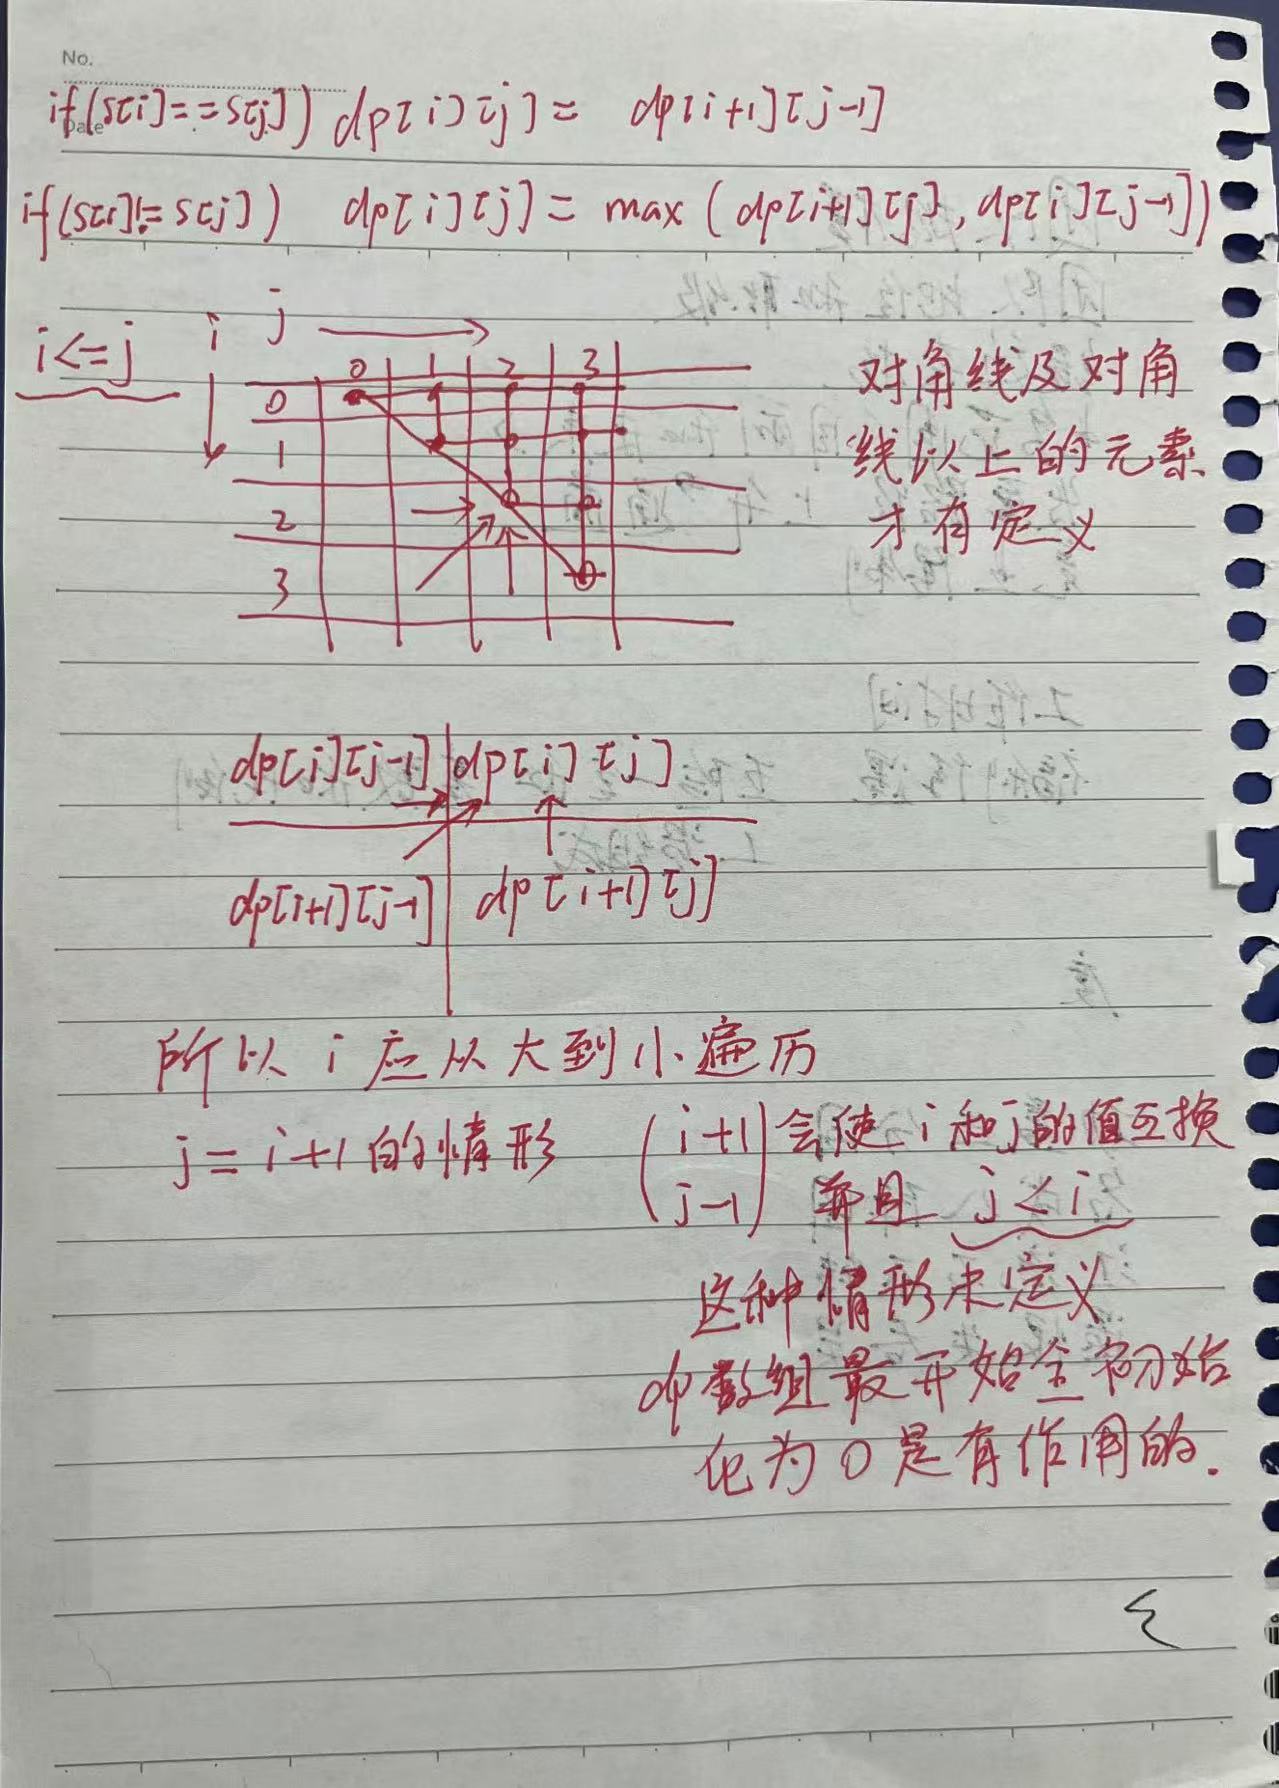 No.
Date
if(s[i]==s[j]) dp[i][j]= dp[i+1][j-1]
if(s[i]!=s[j]) dp[i][j]= max(dp[i+1][j],dp[i][j-1])
i<=j i j
0 1 2 3
0
1
2
3
对角线及对角
线以上的元素
才有定义
dp[i][j-1] dp[i][j]
dp[i+1][j-1] dp[i+1][j]
所以i应从大到小遍历
j=i+1的情形 (i+1 j-1) 会使i和j的值互换
并且 j<i
这种情形未定义
dp数组最开始全初始
化为0是有作用的.